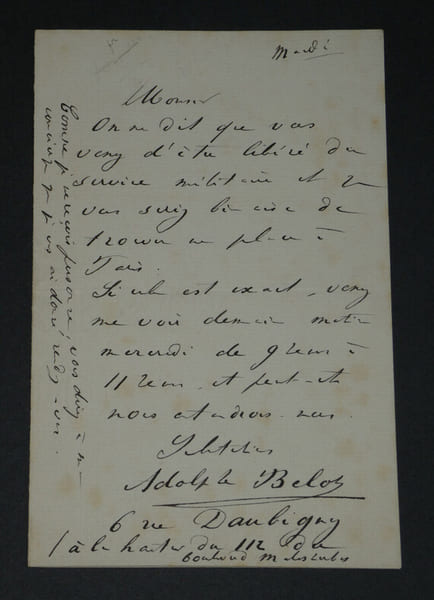 Mardi
Monsieur
On me dit que vous
venez d'être libéré du
service militaire et que
vous seriez bien aise de
trouver une place à
Paris.
Si cela est exact, venez
me voir demain matin
mercredi de 9 heures à
11 heures et peut-être
nous entendrons-nous.
Salutations
Adolphe Belot
6 rue Daubigny
à la hauteur du 112 du
boulevard Malesherbes
vous direz à ma
concierge que je vous ai donné rendez-vous.